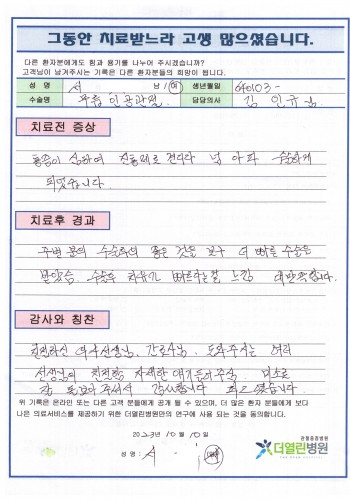 그동안 치료받느라 고생 많으셨습니다.
다른 환자분에게도 힘과 용기를 나누어 주시겠습니까?
고객님이 남겨주시는 기록은 다른 환자분들의 희망이 됩니다.
성 명 서 남 / 여 생년월일 640103-
수술명 무릎 인공관절 담당의사 김
치료전 증상
통증이 심하여 진통제로 견디다 넘 아파 수술하게
되었습니다.
치료후 경과
주변 분의 수술하여 좋은 것을 보고 더 빠른 수술을
받았음. 수술후 치유가 빠르다는걸 느낌
감사와 칭찬
친절하신 의사선생님, 간호사님, 도와주시는 여러
선생님의 친절함 자세한 얘기들어주심, 미소로
주셔서 감사합니다
위 기록은 온라인 또는 다른 고객 분들에게 공개 될 수 있으며, 더 많은 환자 분들에게 보다
나은 의료서비스를 제공하기 위한 더열린병원만의 연구에 사용 되는 것을 동의합니다.
2023년 10월 10일
성명 : 서
관절종합병원
더열린병원